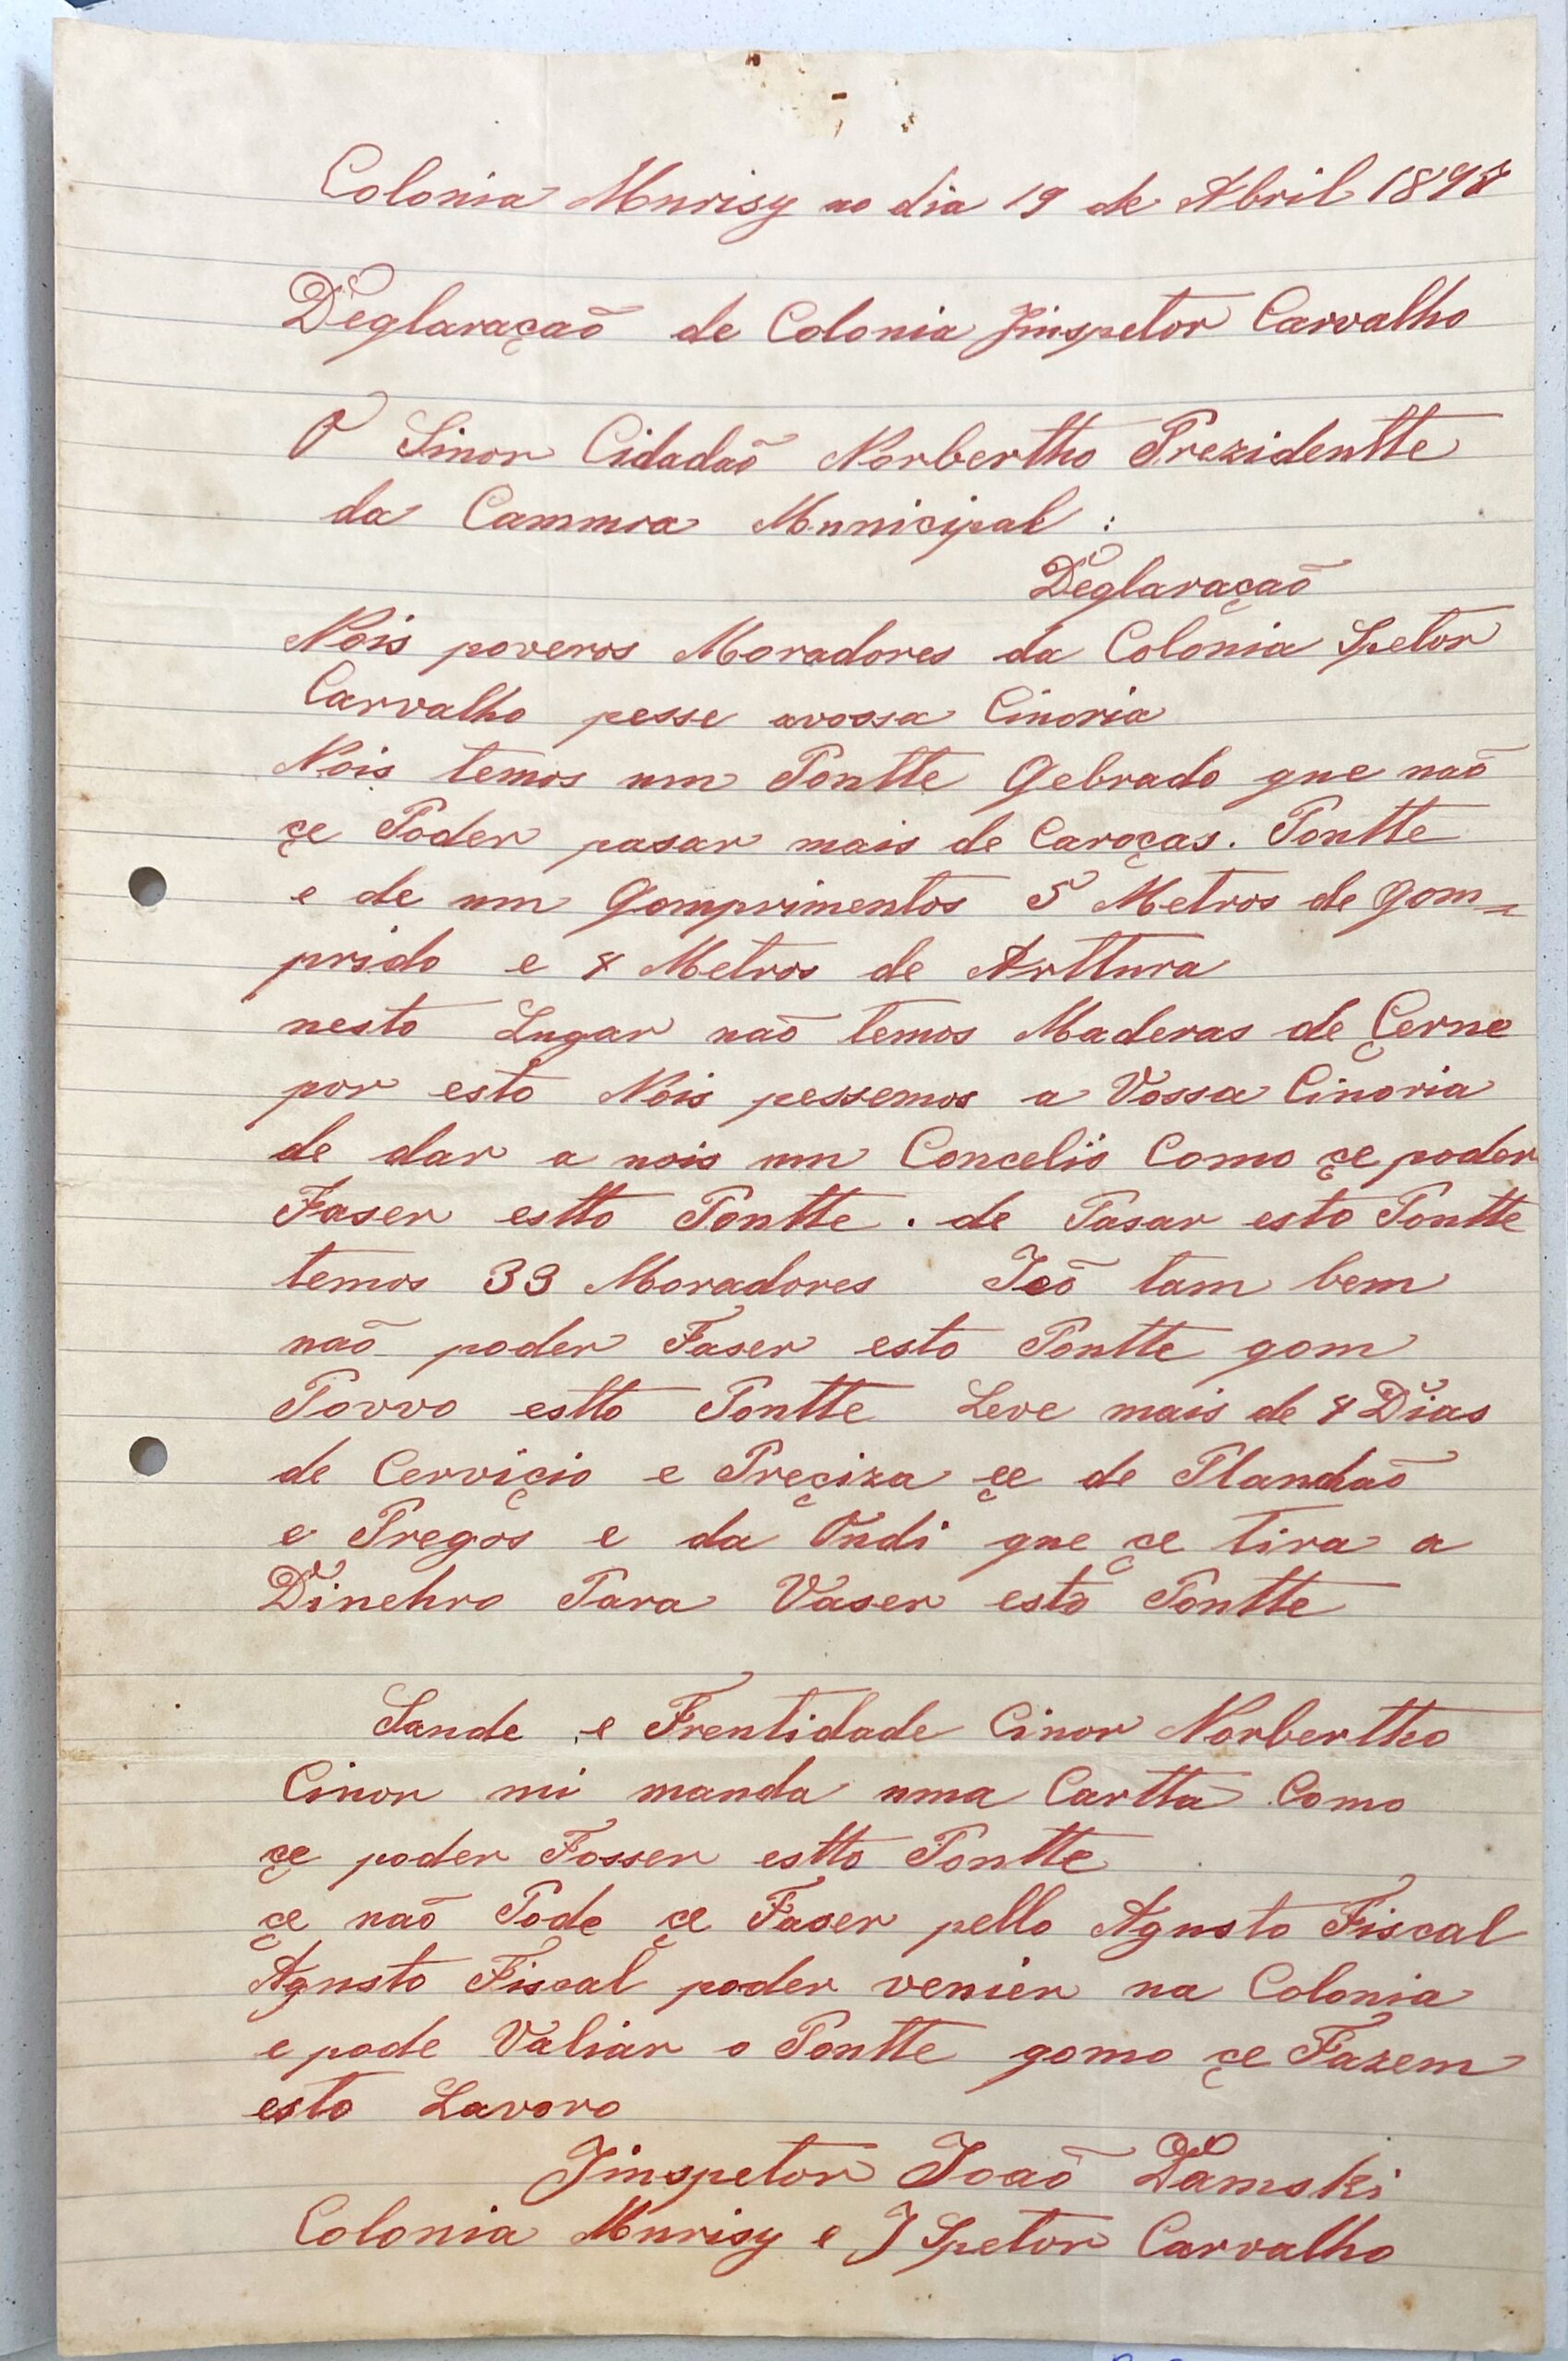 Colonia Murisy no dia 19 de Abril 1898
Deglaraçaõ de Colonia Jinspetor Carvalho
O Sinor Cidadaõ Norbertho Prezidentte
da Cammra Municipal :
Deglaraçaõ
Nois poveros Moradores da Colonia Spetor
Carvalho pesse avossa Cinoria
Nois temos um Pontte Gebrado que naõ
çe Poder pasar mais de Caroças. Pontte
e de um Gomprimentos 5 Metros de Gom=
prido e 8 Metros de Arttura
nesto Lugar naõ temos Maderas de Çerne
por esto Nois pessemos a Vossa Cinoria
de dar a nois um Concelio Como çe poder
Faser estto Pontte . de Pasar esto Pontte
temos 33 Moradores Jeõ tam bem
naõ poder Faser esto Pontte gom
Povvo estto Pontte Leve mais de 8 Dias
de Cerviçio e Preçiza çe de Plandaõ
e Pregos e da Ondi que çe tira a
Dinehro Para Vaser esto Pontte
Saude e Frentidade Cinor Norbertho
Cinor mi manda uma Cartta Como
çe poder Fosser estto Pontte
çe naõ Pode çe Faser pello Agusto Fiscal
Agusto Fiscal poder venier na Colonia
e pode Valiar o Pontte gomo çe Fazem
esto Lavoro
Jinspetor Joaõ Damski
Colonia Murisy e J Spetor Carvalho